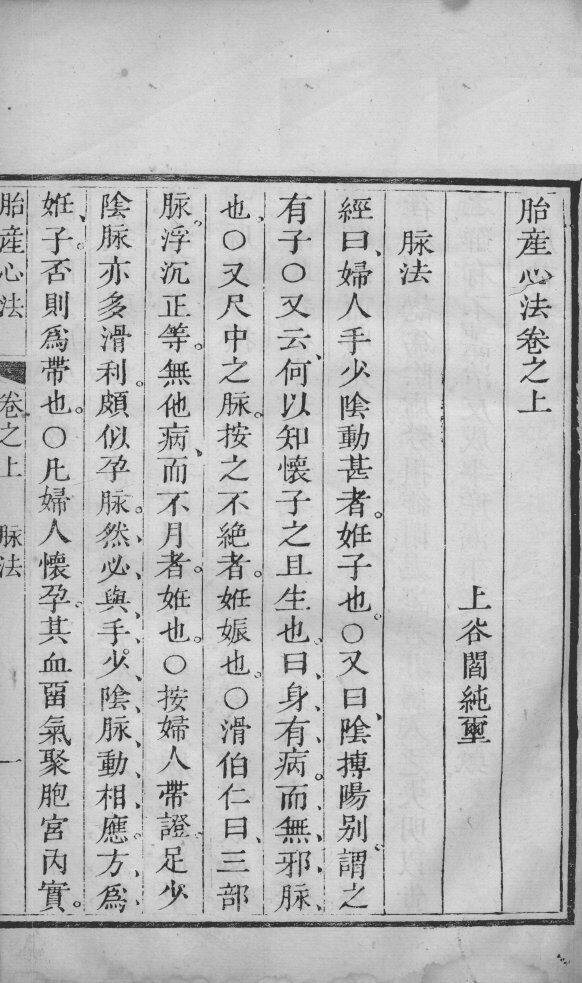 胎產心法卷之上
上谷閻純璽
脉法
經曰、婦人手少陰動甚者。姙子也。○又曰、陰摶陽別。謂之
有子○又云、何以知懷子之且生也、曰、身有病。而無邪脉、
也、○又尺中之脉。按之不絶者。姙娠也。○滑伯仁曰、三部
脉。浮沉正等。無他病、而不月者。姙也。○按婦人帶證。足少
陰脉亦多滑利。頗似孕脉。然必與手少陰脉、動相應。方爲
姙、子。否則爲帶也。○凡婦人懷孕。其血畱氣聚胞宮內實。
胎產心法 卷之上 脉法 一